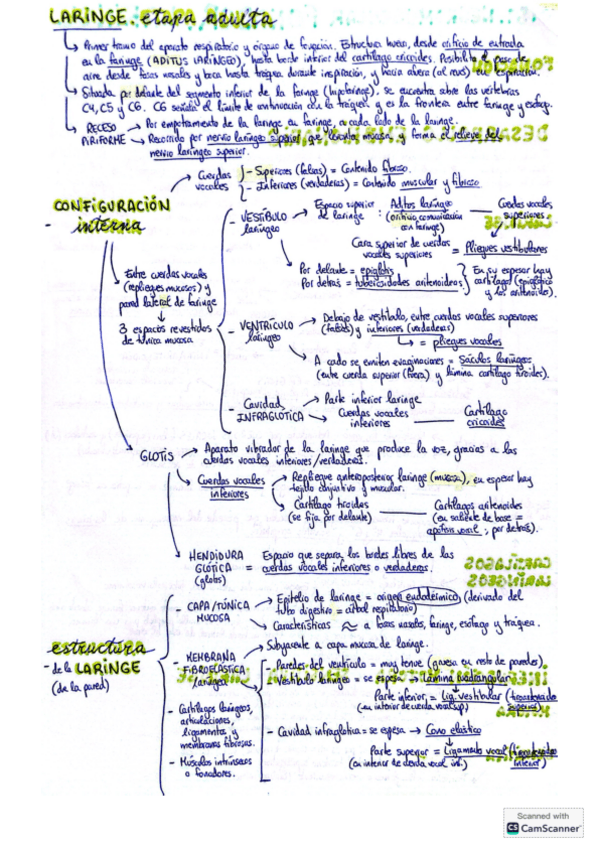 LARINGE. etapa adulta
Primer tramo del aparato respiratorio y órgano de fonación. Estructura hueca, desde orificio de entrada
en la faringe (ADITUS LARÍNGEO), hasta borde inferior del cartílago cricoides. Posibilita el paso de
aire desde fosas nasales y boca hasta tráquea durante inspiración, y hacia afuera (al revés) en espiración.
Situada por delante del segmento inferior de la faringe (hipofaringe), se encuentra sobre las vértebras
C4, C5 y C6. C6 señala el límite de continuación con la tráquea y es la frontera entre faringe y esófago.
RECESO PIRIFORME
Por empotramiento de la laringe en faringe, a cada lado de la laringe.
Recorrido por nervio laríngeo superior que levanta mucosa, y forma el relieve del
nervio laríngeo superior.
CONFIGURACIÓN
interna
Cuerdas vocales
- Superiores (falsas) = Contenido fibroso.
- Inferiores (verdaderas) = Contenido muscular y fibroso
Entre cuerdas vocales
(repliegues mucosos) y
pared lateral de faringe
3 espacios revestidos
de túnica mucosa
- VESTÍBULO
laríngeo
Espacio superior
de laringe :
Aditus laríngeo
(orificio comunicación
con faringe)
Cuerdas vocales
superiores
Cara superior de cuerdas
vocales superiores = Pliegues vestibulares
Por delante = epiglotis
Por detrás = tuberosidades aritenoideas
En su espesor hay
cartílago (epiglótico
y los aritenoides).
- VENTRÍCULO
laríngeo
Debajo de vestíbulo, entre cuerdas vocales superiores
(falsas) y inferiores (verdaderas)
= pliegues vocales
A cada se emiten evaginaciones = Sáculos laríngeos
(entre cuerda superior (fuera) y lámina cartílago tiroides).
- Cavidad
INFRAGLÓTICA
Parte inferior laringe
Cuerdas vocales
inferiores
Cartílago
cricoides
GLOTIS
Aparato vibrador de la laringe que produce la voz, gracias a las
cuerdas vocales inferiores/verdaderas.
Cuerdas vocales
inferiores
Repliegue anteroposterior laringe (mucosa), en espesor hay
tejido conjuntivo y muscular.
Cartílago tiroides
(se fija por delante)
Cartílagos aritenoides
(en saliente de base =
apófisis vocal ; por detrás).
HENDIDURA
GLÓTICA
(glotis)
= Espacio que separa los bordes libres de las
cuerdas vocales inferiores o verdaderas.
estructura
- de la LARINGE
(de la pared)
- CAPA/TÚNICA
MUCOSA
Epitelio de laringe = origen endodérmico (derivado del
tubo digestivo = árbol respiratorio)
Características ≈ a fosas nasales, faringe, esófago y tráquea.
- MEMBRANA
FIBROELÁSTICA
laríngea
Subyacente a capa mucosa de laringe.
- Paredes del ventrículo = muy tenue (gruesa en resto de paredes).
- Vestíbulo laríngeo = se espesa → Lámina cuadrangular
Parte inferior = Lig. vestibular
(en interior de cuerda vocal sup)
- Cavidad infraglótica = se espesa → Cono elástico
Parte superior = Ligamento vocal
(en interior de cuerda vocal inf.)
- Cartílagos laríngeos,
articulaciones,
ligamentos y
membranas fibrosas.
- Músculos intrínsecos
o fonadores.
Scanned with
CS CamScanner